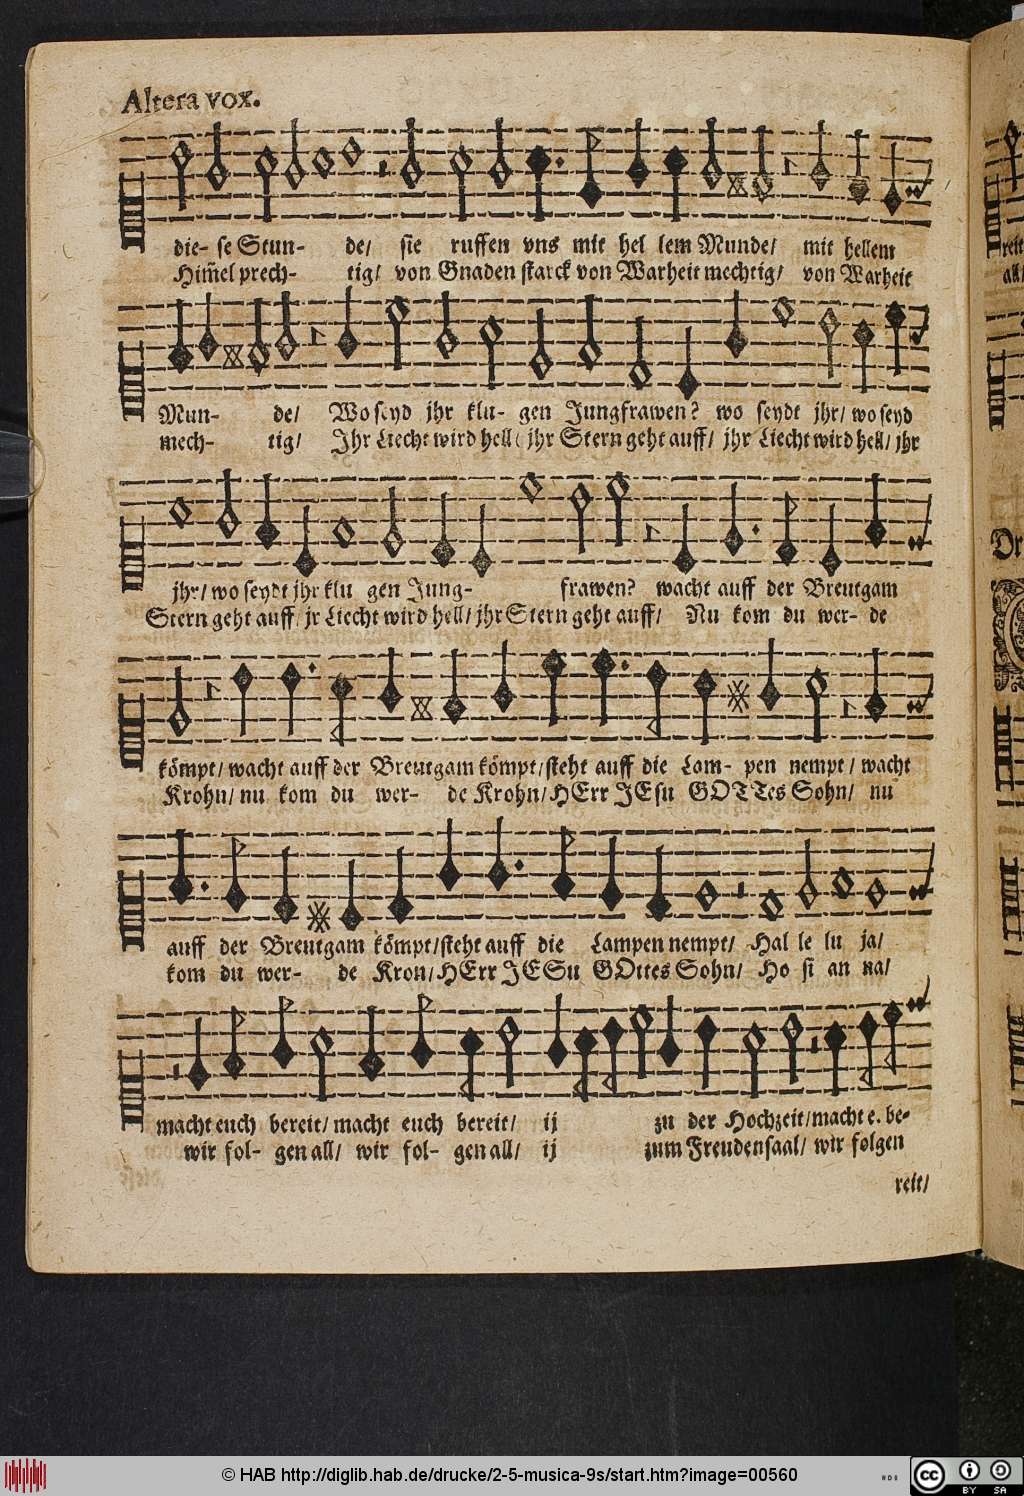 Altera vox.
die- se Stun- de/ sie ruffen vns mit hel lem Munde/ mit hellem
Him̃el prech- tig/ von Gnaden starck von Warheit mechtig/ von Warheit
Mun- de/ Wo seyd jhr klu- gen Jungfrawen? wo seydt jhr/ wo seyd
mech- tig/ Ihr Liecht wird hell/ jhr Stern geht auff/ jhr Liecht wird hell/ jhr
jhr/ wo seydt jhr klu gen Jung- frawen? wacht auff der Breutgam
Stern geht auff/ jr Liecht wird hell/ jhr Stern geht auff/ Nu kom du wer- de
kömpt/ wacht auff der Breutgam kömpt/ steht auff die Lam- pen nempt/ wacht
Krohn/ nu kom du wer- de Krohn/ HErr JEsu GOTTes Sohn/ nu
auff der Breutgam kömpt/ steht auff die Lampen nempt/ Hal le lu ja/
kom du wer- de Kron/ HErr JESu GOttes Sohn/ Ho si an na/
macht euch bereit/ macht euch bereit/ ij zu der Hochzeit/ macht e. be-
wir fol- gen all/ wir fol- gen all/ ij zum Freudensaal/ wir folgen
reit/
reit
all/
© HAB http://diglib.hab.de/drucke/2-5-musica-9s/start.htm?image=00560
cc BY SA